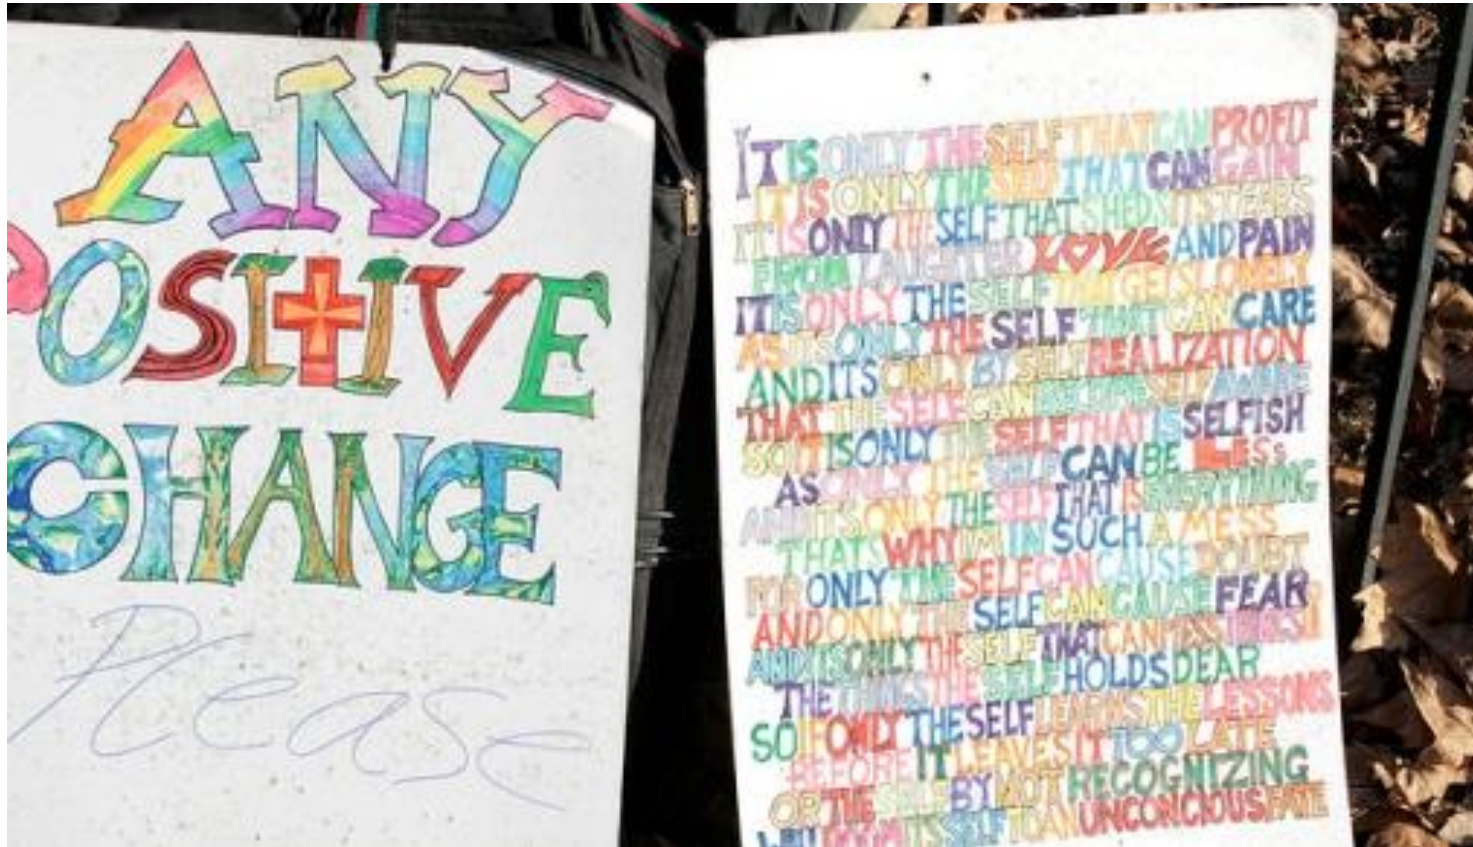 ANY
POSITIVE
CHANGE
Please
IT IS ONLY THE SELF THAT CAN PROFIT
IT IS ONLY THE SELF THAT CAN GAIN
IT IS ONLY THE SELF THAT SHEDS ITS TEARS
FROM LAUGHTER LOVE AND PAIN
IT IS ONLY THE SELF THAT GETS LONELY
AS ITS ONLY THE SELF THAT CAN CARE
AND ITS ONLY BY SELF REALIZATION
THAT THE SELF CAN BECOME SELF AWARE
SO IT IS ONLY THE SELF THAT IS SELFISH
AS ONLY THE SELF CAN BE LESS
AND ITS ONLY THE SELF THAT IS EVERYTHING
THATS WHY IM IN SUCH A MESS
FOR ONLY THE SELF CAN CAUSE DOUBT
AND ONLY THE SELF CAN CAUSE FEAR
AND ITS ONLY THE SELF THAT CAN MISS THINGS
THE THINGS THE SELF HOLDS DEAR
SO IF ONLY THE SELF LEARNS THE LESSONS
BEFORE IT LEAVES IT TOO LATE
OR THE SELF BY NOT RECOGNIZING
WILL DOOM ITS SELF TO AN UNCONCIOUS FATE